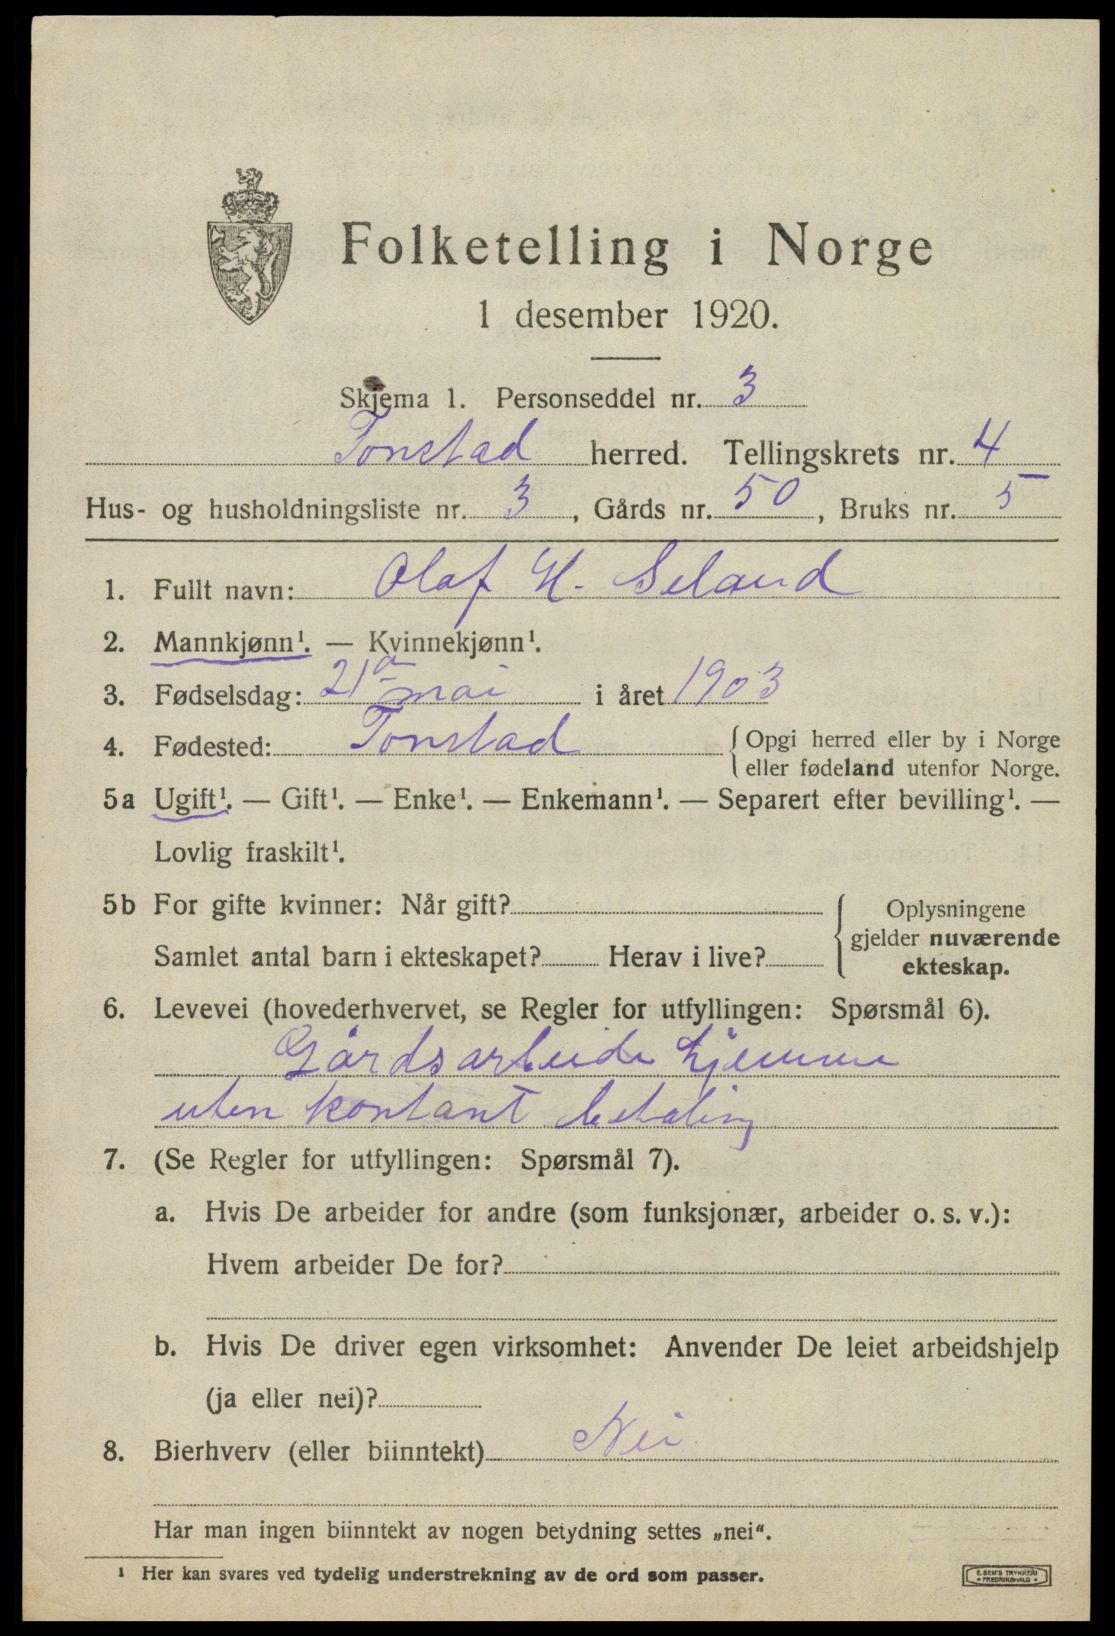 Folketelling i Norge
1 desember 1920.
Skjema 1. Personseddel nr. 3
Tonstad herred. Tellingskrets nr. 4
Hus- og husholdningsliste nr. 3, Gårds nr. 50, Bruks nr. 5
1. Fullt navn: Olaf H. Seland
2. Mannkjønn¹. — Kvinnekjønn¹.
3. Fødselsdag: 21de mai i året 1903
4. Fødested: Tonstad {Opgi herred eller by i Norge
eller fødeland utenfor Norge.
5a Ugift¹. — Gift¹. — Enke¹. — Enkemann¹. — Separert efter bevilling¹. —
Lovlig fraskilt¹.
5b For gifte kvinner: Når gift? { Oplysningene
gjelder nuværende
Samlet antal barn i ekteskapet? Herav i live?
ekteskap.
6. Levevei (hovederhvervet, se Regler for utfyllingen: Spørsmål 6).
Gårdsarbeide hjemme
uten kontant betaling
7. (Se Regler for utfyllingen: Spørsmål 7).
a. Hvis De arbeider for andre (som funksjonær, arbeider o. s. v.):
Hvem arbeider De for?
b. Hvis De driver egen virksomhet: Anvender De leiet arbeidshjelp
(ja eller nei)?
8. Bierhverv (eller biinntekt) Nei
Har man ingen biinntekt av nogen betydning settes „nei“.
¹ Her kan svares ved tydelig understrekning av de ord som passer.
E. SEM'S TRYKKERI
FREDRIKSHALD